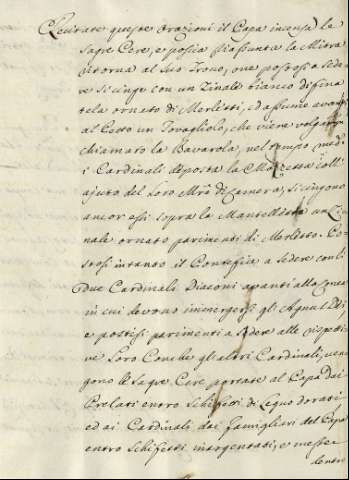 Recitate queste Orazioni il Papa incensa le
Sagre Cere, e poscia riassunta la Mitra
ritorna al suo Trono, ove postosi a sede
re si cinge con un Zinale bianco di fina
tela ornato di Merletti, ed assume avanti
al Petto un Tovagliolo, che viene volgarm.
chiamato la Bavarola, nel tempo med.
i Cardinali deposta la Mozzetta coll'
ajuto del loro Mro di Camera, si cingono
ancor essi sopra la Mantelletta un Zi
nale ornato parimenti di Merletto. Po
stosi intanto il Pontefice a sedere con li
due Cardinali Diaconi avanti alla Conca
in cui devono immergersi gli Agnus Dei,
e postisi parimenti a sedere alle rispetti
ve loro Conche gli altri Cardinali, ven
gono le Sagre Cere portate al Papa dai
Prelati entro Schifetti di Legno dorati
ed ai Cardinali dai famigliari del Papa
entro Schifetti inargentati, e messe
dentro